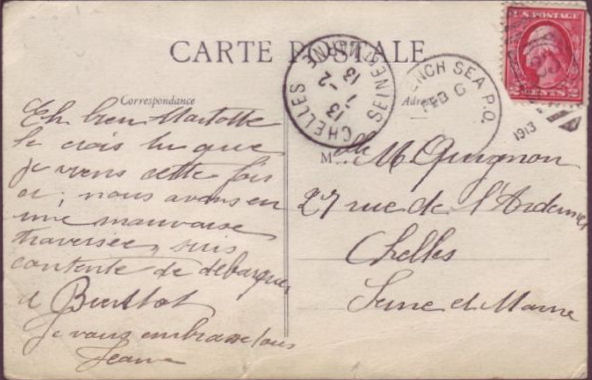 CARTE POSTALE
Correspondance
Adresse
U.S. POSTAGE
2 CENTS 2
CHELLES
SEINE ET MARNE
13
7 -2
13
FRENCH SEA P.O.
FEB 6
1913
M
Eh bien
Je crois tu que
je viens cette fois
ci; nous avons eu
une mauvaise
traversée, suis
contente de débarquer
à
Je vous embrasse tous
Jeanne
M. Guignon
27 rue de l'Ardennes
Chelles
Seine et Marne